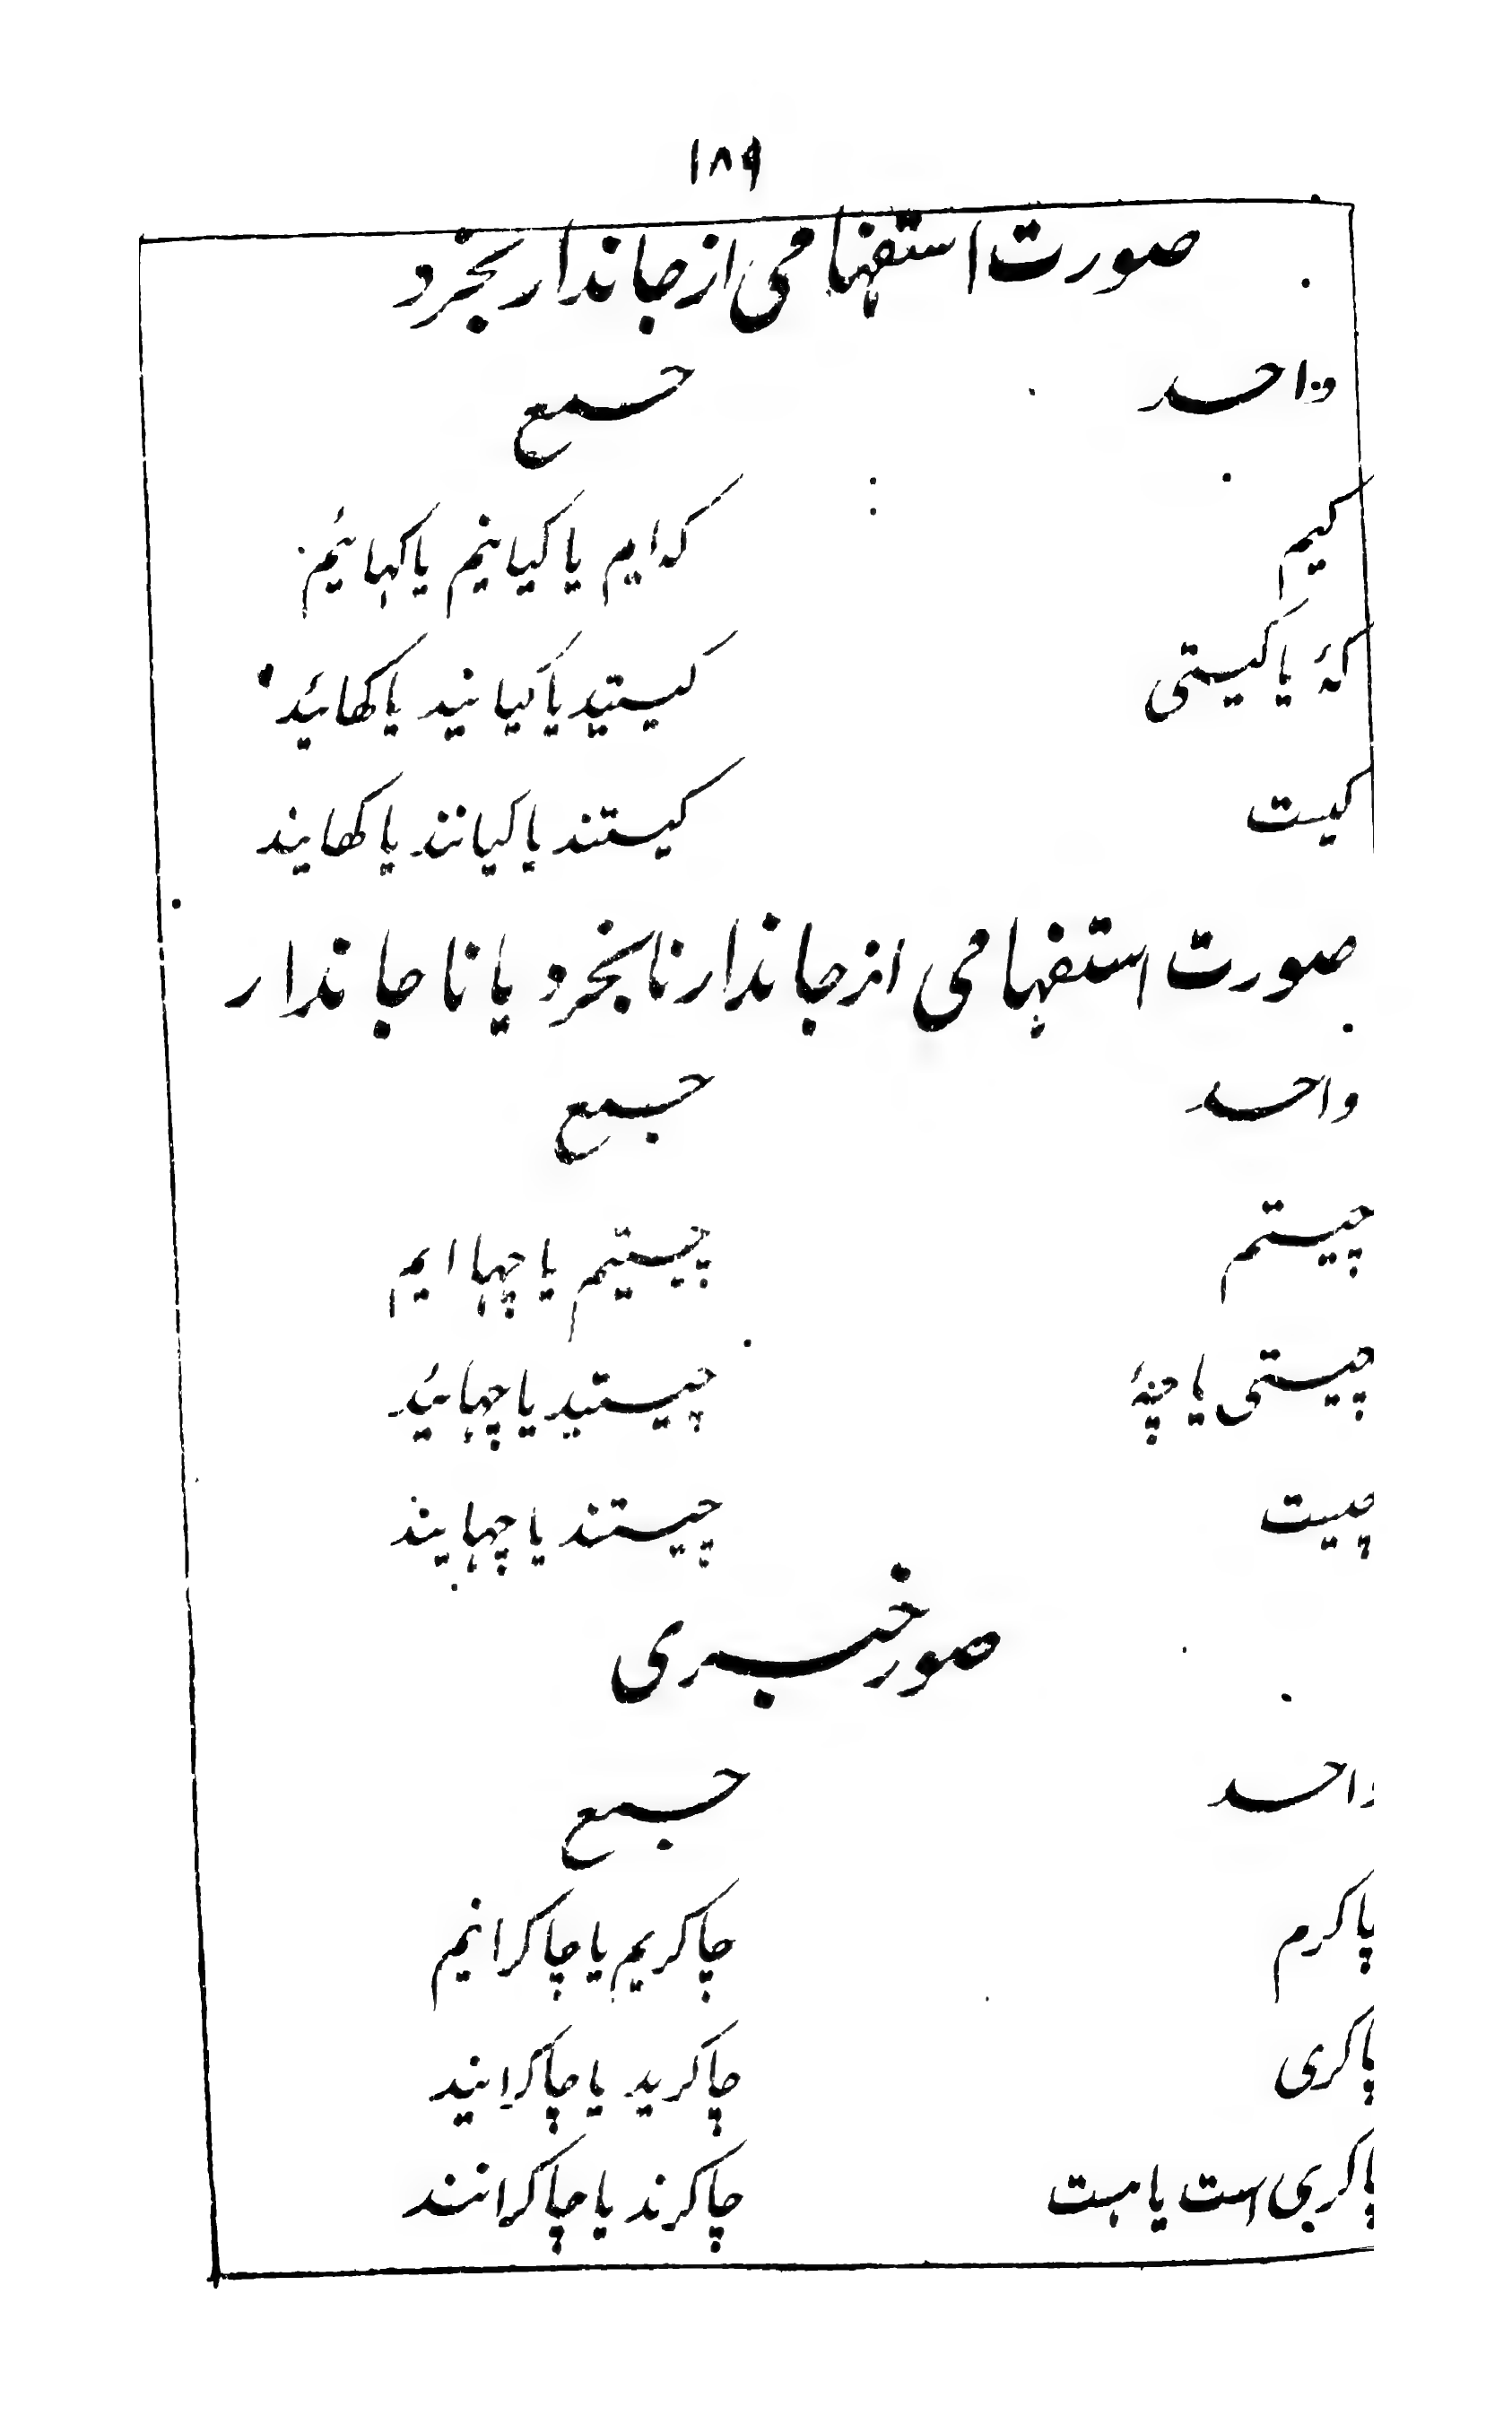 ۱۸۹
صورت استفهامی از جاندار بخرد
واحد جمع
کیم که ایم یا کیانیم یا کہائیم
کۂ یا کیستی کیستید یا کیانید یا کھائید
کیست کیستند یا کیانند یا کھایند
صورت استفهامی از جاندار نابخرد یا ناجاندار
واحد جمع
چیستم چیستیم یا چہا ایم
چیستی یا چۂ چیستید یا چہائید
چیست چیستند یا چہایند
صور خبری
واحد جمع
چاکرم چاکریم یا چاکرانیم
چاکری چاکرید یا چاکرانید
چاکری است یا ہست چاکرند یا چاکرانند